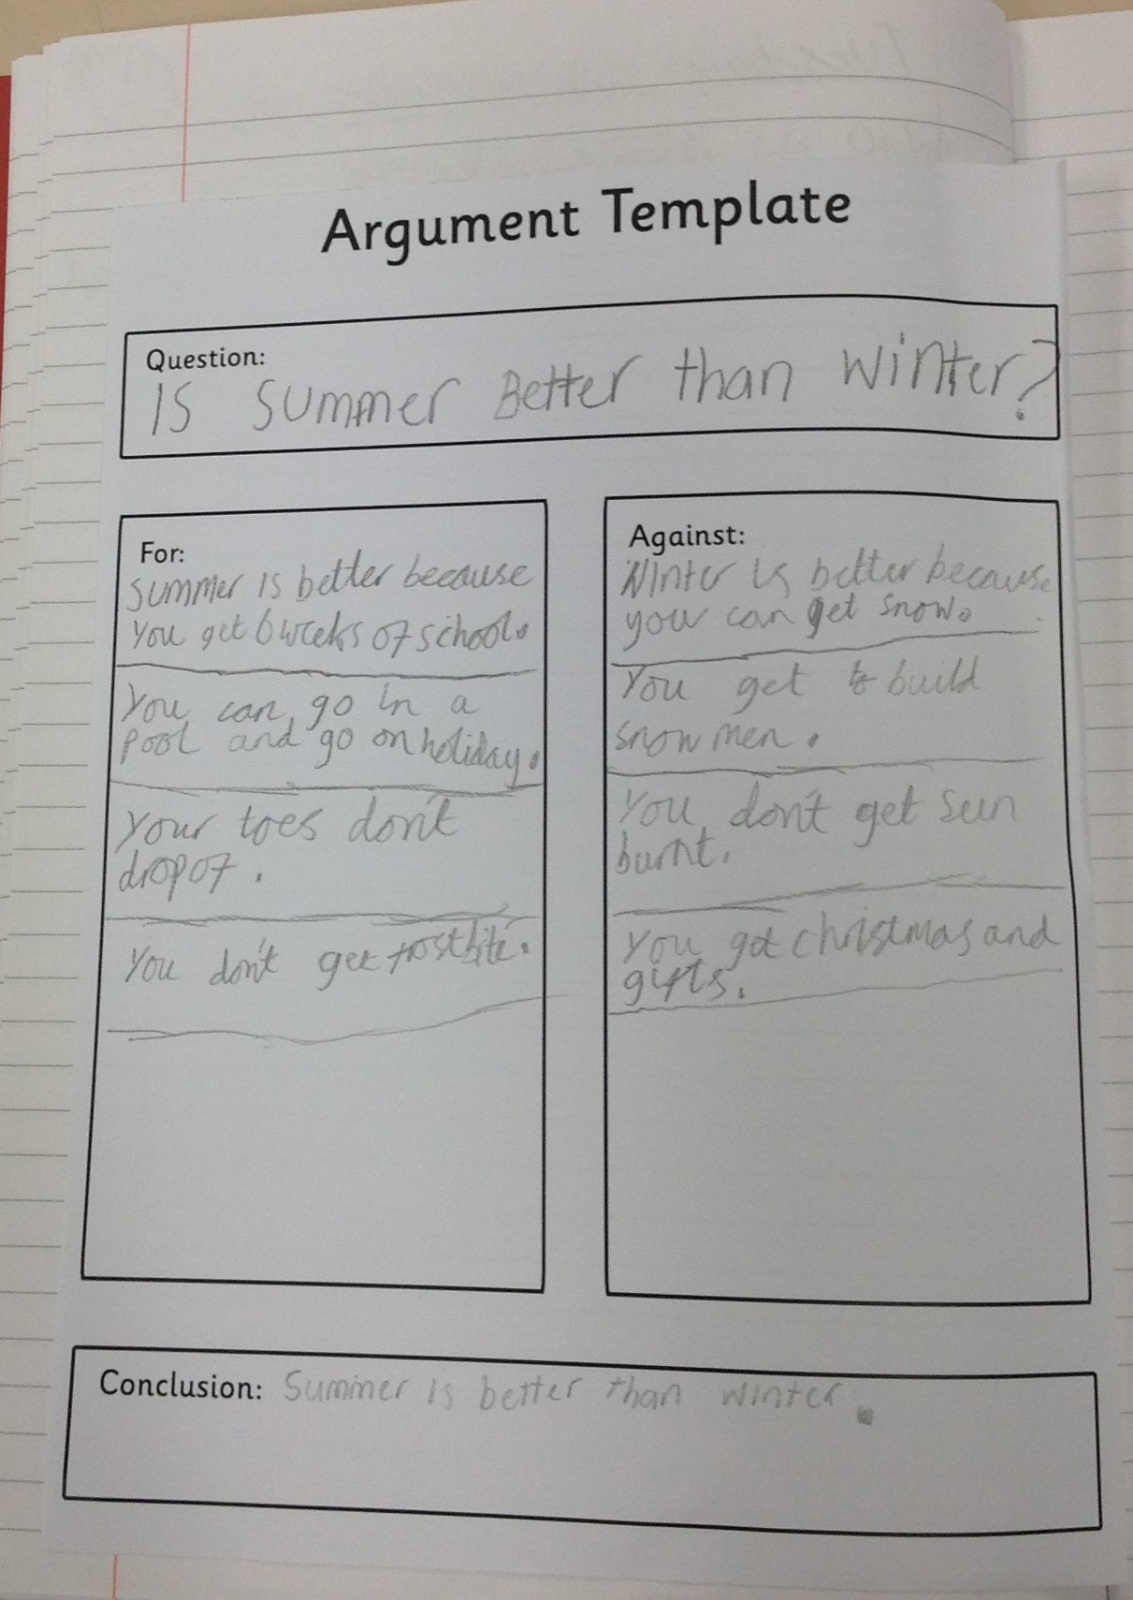 Argument Template
Question:
Is Summer Better than Winter?
For:
Summer is better because
you get 6 weeks of school.
You can go in a
pool and go on holiday.
Your toes don't
drop of.
You don't get frostbite.
Against:
Winter is better because
you can get snow.
You get to build
snow men.
You don't get sun
burnt.
You get christmas and
gifts.
Conclusion: Summer is better than winter.